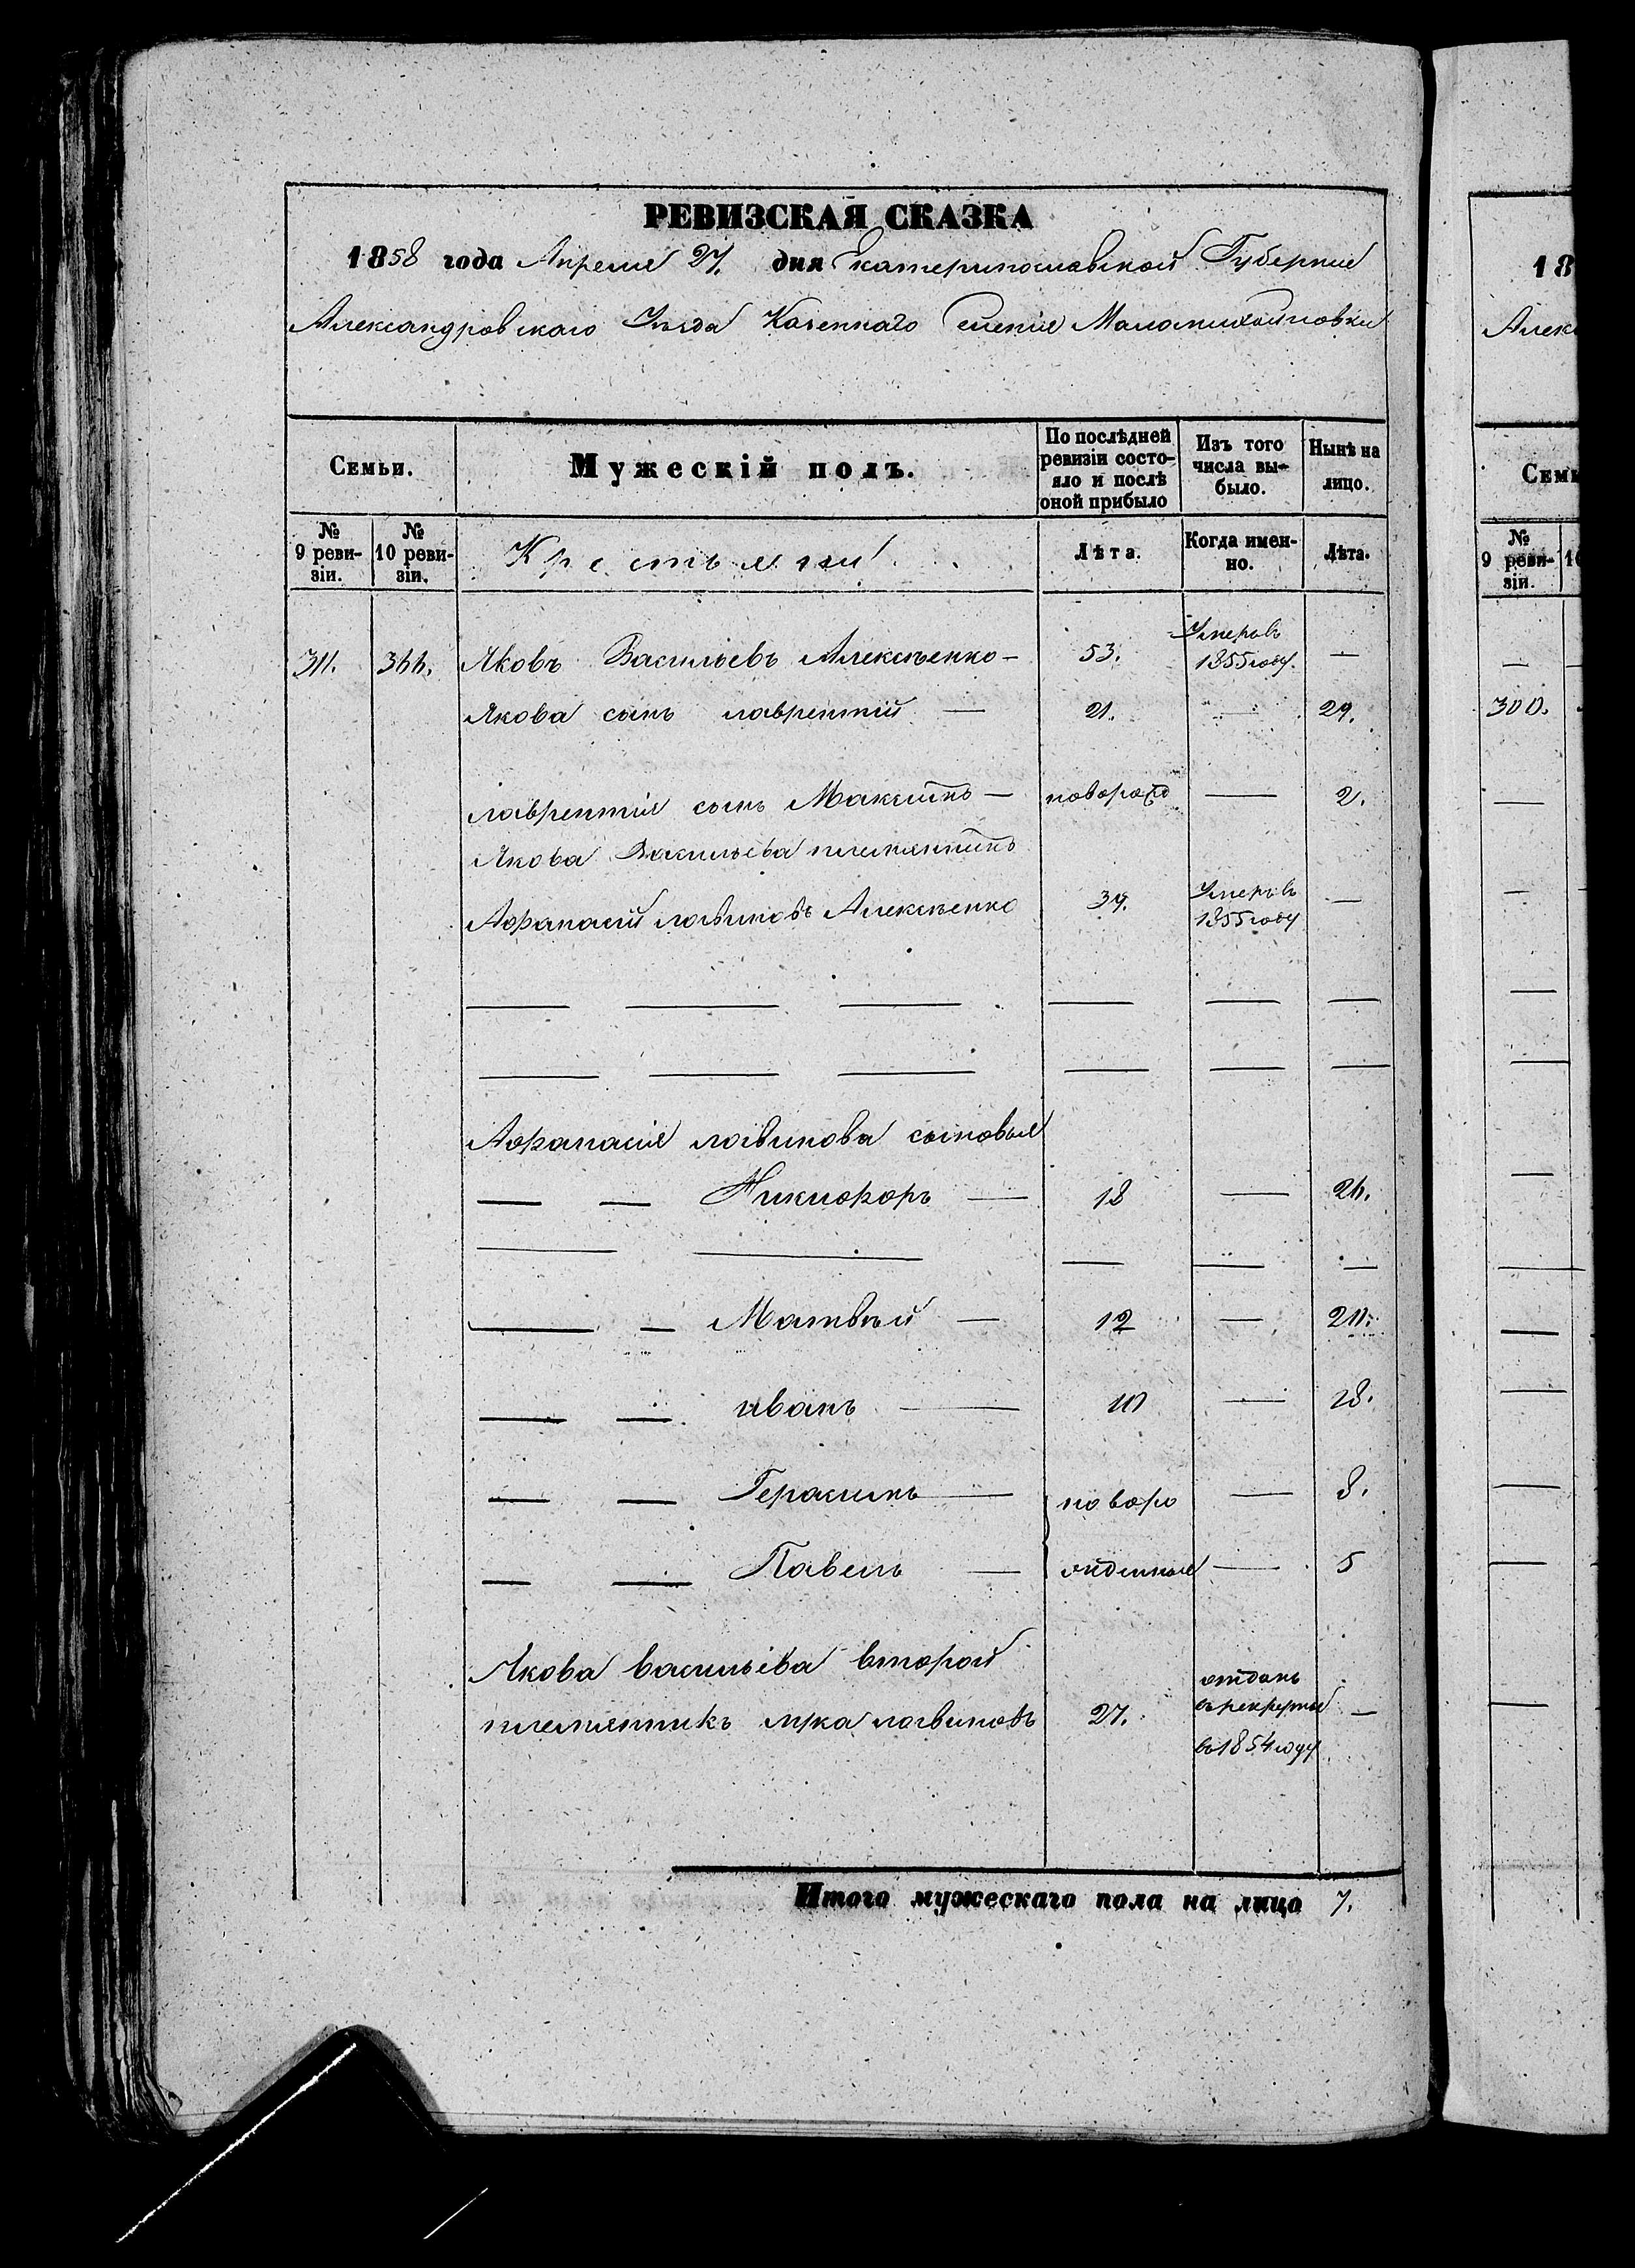 РЕВИЗСКАЯ СКАЗКА
1858 года Апреля 27. дня Екатеринославской Губернии
Александровскаго Уѣзда Казеннаго Селенія Маломихайловки
Семьи.
Мужескій полъ.
По послѣдней ревизіи состояло и послѣ оной прибыло
Изъ того числа выбыло.
Нынѣ на лицо.
№ 9 ревизіи.
№ 10 ревизіи.
Крестьяни
Лѣта.
Когда именно.
Лѣта.
311. 344. Яковъ Васильевъ Алексѣенко — 53. Умеръ въ 1855 году. —
Якова сынъ лаврентій — 21. — 29.
лаврентія сынъ Максимъ — новорожд — 2.
Якова Васильева племянникъ
Афанасій логвиновъ Алексѣенко 34. Умеръ въ 1855 году —
Афанасія логвинова сыновья
Никифоръ — 18 — 26.
Матвѣй — 12 — 20.
иванъ — 10 — 18.
Герасимъ — новоро — 8.
Павелъ — жденныя — 5
Якова васильева второй
племянникъ лука логвиновъ 27. отданъ въ рекруты в 1854 году —
Итого мужескаго пола на лицо 7.
18
Алек
Семь
№ 9 ревизіи.
10
300.